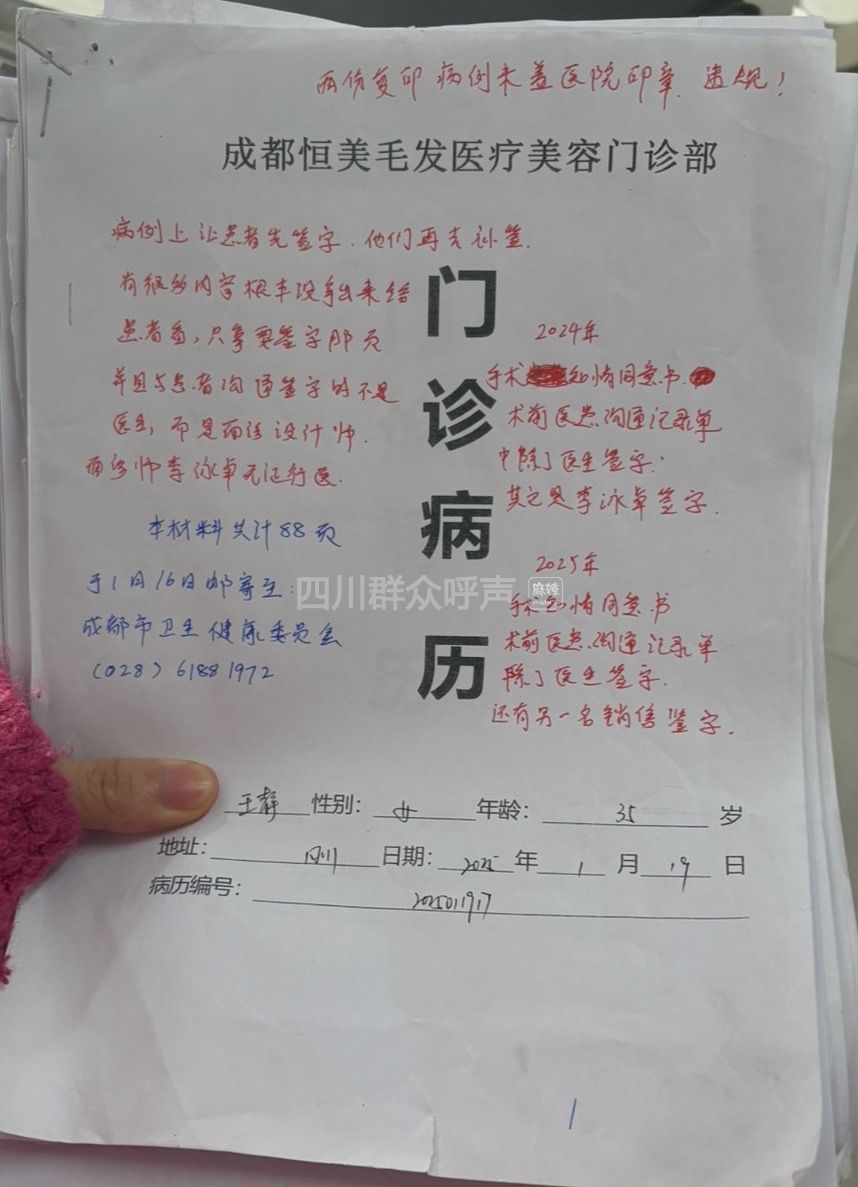 两份复印病例未盖医院印章. 违规!
成都恒美毛发医疗美容门诊部
病例上让患者先签字. 他们再去补签.
有很多内容根本没拿出来给
患者看, 只拿要签字那页
并且与患者沟通签字的不是
医生, 而是面诊设计师.
面诊师李泳卓无证行医.
本材料共计88页
于1月16日邮寄至:
成都市卫生健康委员会
(028) 61881972
门诊病历
2024年
手术知情同意书.
术前医患沟通记录单
中除了医生签字.
其它是李泳卓签字.
2025年
手术知情同意书
术前医患沟通记录单
除了医生签字.
还有另一名销售签字.
四川群众呼声 麻辣
王静 性别: 女 年龄: 35 岁
地址: 四川 日期: 2025 年 1 月 19 日
病历编号: 2025011917
1